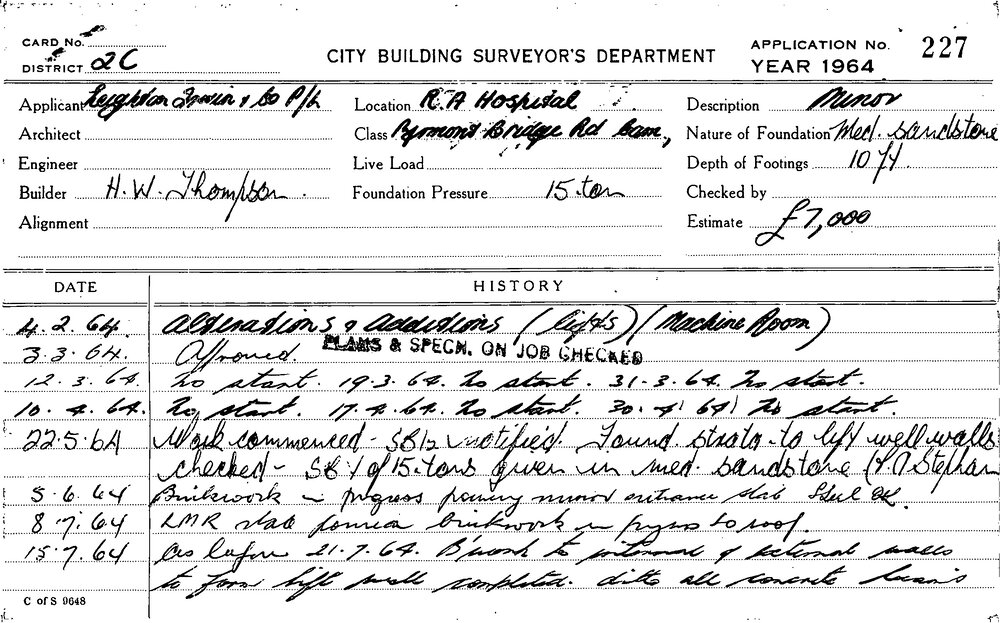 CARD No.
DISTRICT 2C
CITY BUILDING SURVEYOR'S DEPARTMENT
APPLICATION No. 227
YEAR 1964
Applicant Leighton Irwin & Co P/L
Location R.A Hospital
Description Minor
Architect
Class Pyrmont Bridge Rd Cam,
Nature of Foundation Med. sandstone
Engineer
Live Load
Depth of Footings 10 ft
Builder H. W. Thompson.
Foundation Pressure 15 ton
Checked by
Alignment
Estimate £7,000
DATE HISTORY
4.2.64. Alterations & Additions (lifts) (Machine Room)
3.3.64. Approved. PLANS & SPECN. ON JOB CHECKED
12.3.64. No start. 19.3.64. No start. 31.3.64. No start.
10.4.64. No start. 17.4.64. No start. 30.4.64 No start.
22.5.64 Work commenced - notified. Found. strata to lift well walls
checked - of 15.tons given in med sandstone
5.6.64 Brickwork in progress minor entrance slab Steel OK.
8.7.64 LMR slab brickwork in progress to roof.
15.7.64 As before 21.7.64. B'work to internal & external walls
to form lift well completed. ditto all concrete
C of S 9648